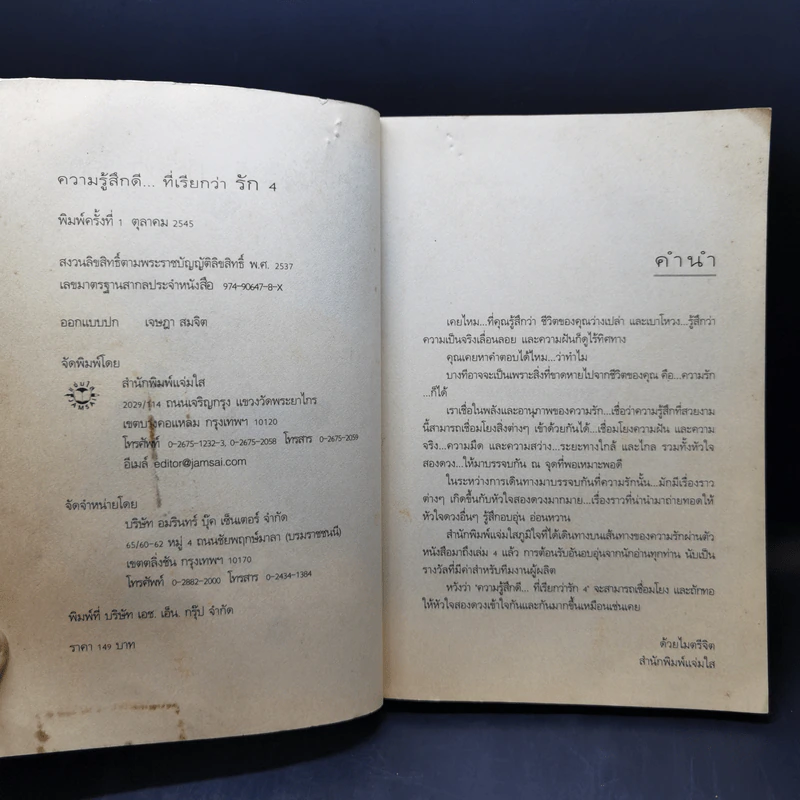 ความรู้สึกดี... ที่เรียกว่า รัก 4
พิมพ์ครั้งที่ 1 ตุลาคม 2545
สงวนลิขสิทธิ์ตามพระราชบัญญัติลิขสิทธิ์ พ.ศ. 2537
เลขมาตรฐานสากลประจำหนังสือ 974-90647-8-X
ออกแบบปก เจษฎา สมจิต
จัดพิมพ์โดย
สำนักพิมพ์แจ่มใส
2029/114 ถนนเจริญกรุง แขวงวัดพระยาไกร
เขตบางคอแหลม กรุงเทพฯ 10120
โทรศัพท์ 0-2675-1232-3, 0-2675-2058 โทรสาร 0-2675-2059
อีเมล์ editor@jamsai.com
จัดจำหน่ายโดย
บริษัท อมรินทร์ บุ๊ค เซ็นเตอร์ จำกัด
65/60-62 หมู่ 4 ถนนชัยพฤกษ์มาลา (บรมราชชนนี)
เขตตลิ่งชัน กรุงเทพฯ 10170
โทรศัพท์ 0-2882-2000 โทรสาร 0-2434-1384
พิมพ์ที่ บริษัท เอช. เอ็น. กรุ๊ป จำกัด
ราคา 149 บาท
คำนำ
เคยไหม...ที่คุณรู้สึกว่า ชีวิตของคุณว่างเปล่า และเบาโหวง...รู้สึกว่า
ความเป็นจริงเลื่อนลอย และความฝันก็ดูไร้ทิศทาง
คุณเคยหาคำตอบได้ไหม...ว่าทำไม
บางทีอาจจะเป็นเพราะสิ่งที่ขาดหายไปจากชีวิตของคุณ คือ...ความรัก
...ก็ได้
เราเชื่อในพลังและอานุภาพของความรัก...เชื่อว่าความรู้สึกที่สวยงาม
นี้สามารถเชื่อมโยงสิ่งต่างๆ เข้าด้วยกันได้...เชื่อมโยงความฝัน และความ
จริง...ความมืด และความสว่าง...ระยะทางใกล้ และไกล รวมทั้งหัวใจ
สองดวง...ให้มาบรรจบกัน ณ จุดที่พอเหมาะพอดี
ในระหว่างการเดินทางมาบรรจบกันที่ความรักนั้น...มักมีเรื่องราว
ต่างๆ เกิดขึ้นกับหัวใจสองดวงมากมาย...เรื่องราวที่น่านำมาถ่ายทอดให้
หัวใจดวงอื่นๆ รู้สึกอบอุ่น อ่อนหวาน
สำนักพิมพ์แจ่มใสภูมิใจที่ได้เดินทางบนเส้นทางของความรักผ่านตัว
หนังสือมาถึงเล่ม 4 แล้ว การต้อนรับอันอบอุ่นจากนักอ่านทุกท่าน นับเป็น
รางวัลที่มีค่าสำหรับทีมงานผู้ผลิต
หวังว่า 'ความรู้สึกดี... ที่เรียกว่ารัก 4' จะสามารถเชื่อมโยง และถักทอ
ให้หัวใจสองดวงเข้าใจกันและกันมากขึ้นเหมือนเช่นเคย
ด้วยไมตรีจิต
สำนักพิมพ์แจ่มใส